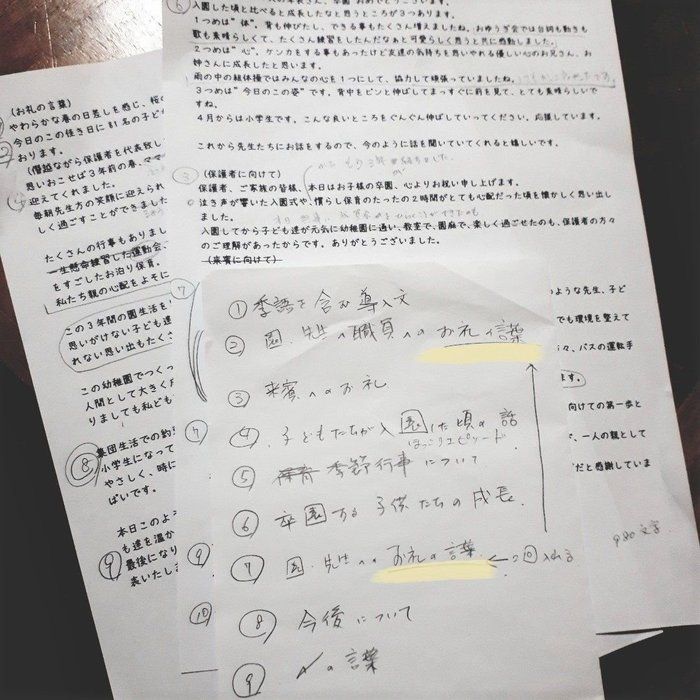 入園した頃と比べると成長したなと思うところが3つあります。
1つめは"体"。背も伸びたし、できる事もたくさん増えましたね。おゆうぎ会では台詞も動きも
歌も素晴らしくて、たくさん練習をしたんだなぁと可愛らしく思うと共に感動しました。
2つめは"心"。ケンカをする事もあったけど友達の気持ちを思いやれる優しい心のお兄さん、お
姉さんに成長したと思います。
雨の中の組体操ではみんなの心を1つにして、協力して頑張っていましたね。
3つめは"今日のこの姿"です。背中をピンと伸ばしてまっすぐに前を見て、とても素晴らしいで
すね。
4月からは小学生です。こんな良いところをぐんぐん伸ばしていってください。応援しています。
これから先生たちにお話をするので、今のように話を聞いていてくれると嬉しいです。
③
(保護者に向けて)
保護者、ご家族の皆様、本日はお子様の卒園、心よりお祝い申し上げます。
泣き声が響いた入園式や、慣らし保育のたったの2時間がとても心配だった頃を懐かしく思い出し
ました。
入園してから子ども達が元気に幼稚園に通い、教室で、園庭で、楽しく過ごせたのも、保護者の方々
のご理解があったからです。ありがとうございました。
(来賓に向けて)
(お礼の言葉)
やわらかな春の日差しを感じ、桜の
今日のこの佳き日に81名の子ども
おります。
(僭越ながら保護者を代表致し
思いおこせば3年前の春、ママ
④
迎えてくれました。
毎朝先生方の笑顔に迎えられ
しく過ごすことができました
たくさんの行事もありまし
一生懸命練習した運動会、
をすごしたお泊り保育。
私たち親の心配をよそに
⑦
この3年間の園生活を
思いがけない子ども達
れない思い出もたくさ
この幼稚園でつくっ
人間として大きく成
りましても私ども
⑧
集団生活での約
小学生になって
やさしく、時に
ばいです。
本日このよう
も達を温か
⑨
最後になり
表いたしま
のような先生、子ど
でも環境を整えて
々、バスの運転手
ます。
向けての第一歩と
で、一人の親として
だと感謝していま
980文字
① 季語を含む導入文
② 園、先生、職員へのお礼の言葉
③ 来賓へのお礼
④ 子どもたちが入園した頃の話
ほっこりエピソード
⑤ 季節行事について
⑥ 卒園する子供たちの成長
⑦ 園、先生へのお礼の言葉 ←②に入れる
⑧ 今後について
⑨ 〆の言葉
⑦
⑨
⑩